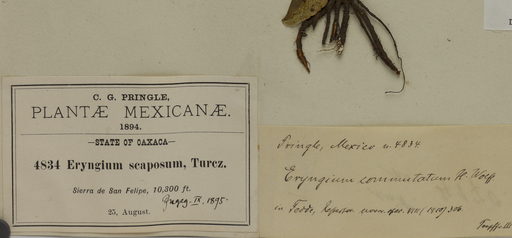 C. G. PRINGLE,
PLANTÆ MEXICANÆ.
1894.
STATE OF OAXACA
4834 Eryngium scaposum, Turcz.
Sierra de San Felipe, 10,300 ft.
25, August.
IX. 1895.
Pringle, Mexico n. 4834
Eryngium commutatum H. Wolff
in Fedde, Repertor. nov. spec. VIII (1910)